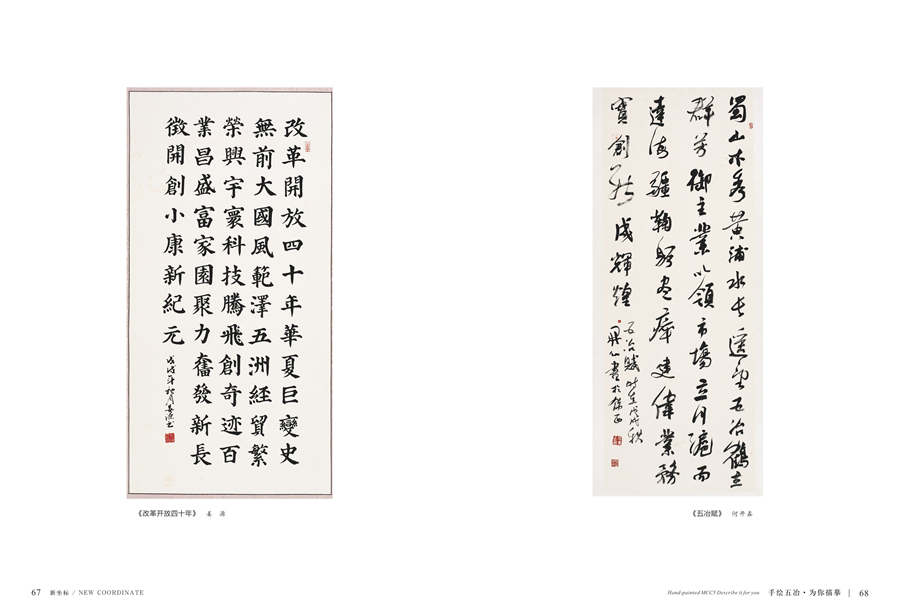 改革開放四十年華夏巨變史
無前大國風範澤五洲經貿繁
榮興宇寰科技騰飛創奇迹百
業昌盛富家園聚力奮發新長
徵開創小康新紀元
戊戌年秋月姜源書
《改革开放四十年》 姜 源
蜀山木秀黄浦水長遥望五冶鶴立
群芳御主業以領市場立川滬而
達海疆鞠躬盡瘁建偉業務
實創新成輝煌
五冶賦 时在戊戌秋
《五冶赋》 何开鑫
67 新坐标 / NEW COORDINATE
Hand-painted MCC5 Describe it for you 手绘五冶·为你描摹 | 68